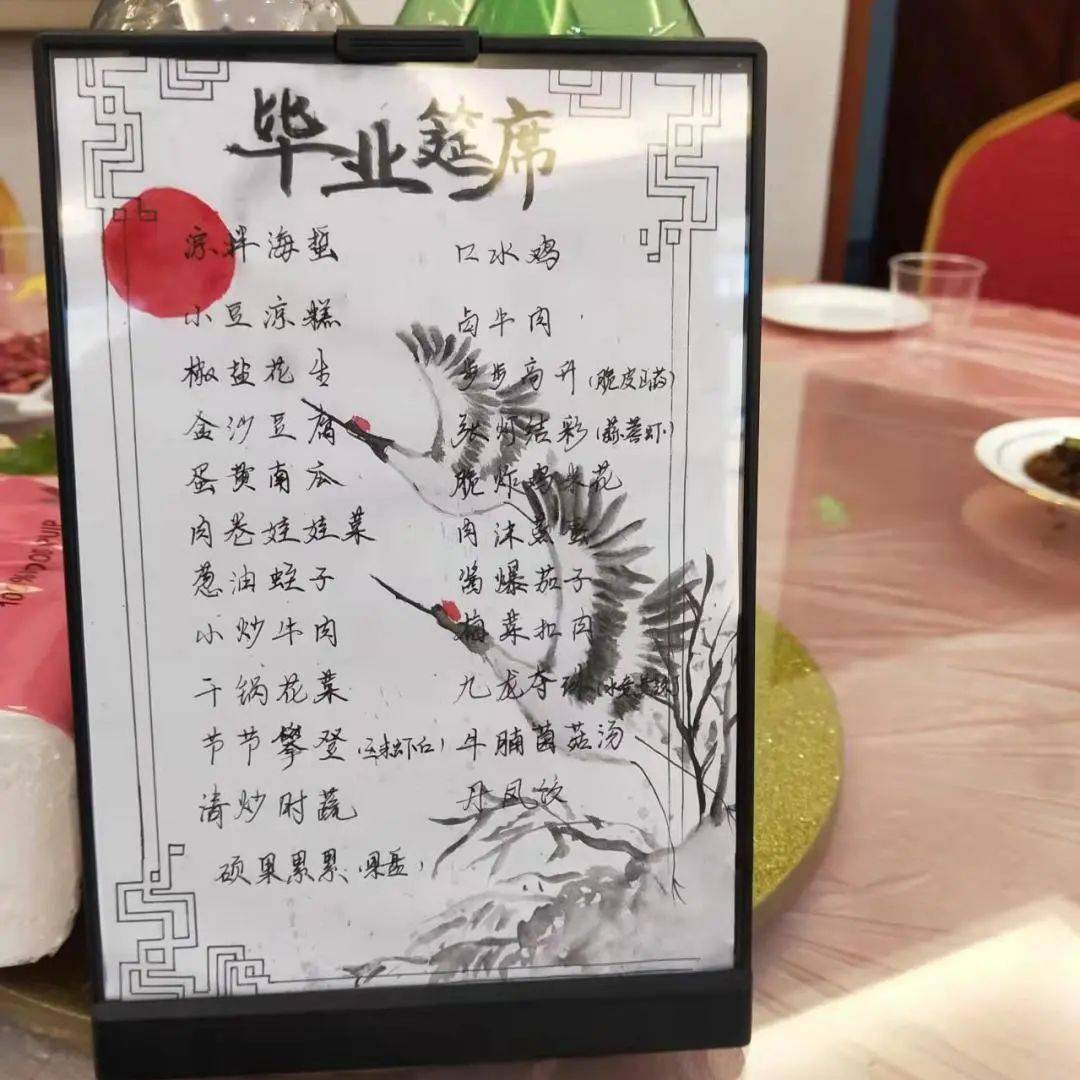 毕业筵席
凉拌海蜇 口水鸡
小豆凉糕 卤牛肉
椒盐花生 步步高升(脆皮山药)
金沙豆腐 张灯结彩(蒜蓉虾)
蛋黄南瓜 脆炸鸡米花
肉卷娃娃菜 肉沫蒸蛋
葱油蛏子 酱爆茄子
小炒牛肉 梅菜扣肉
干锅花菜 九龙夺珠
节节攀登 牛腩菌菇汤
清炒时蔬 丹凤饮
硕果累累(果盘)
100%